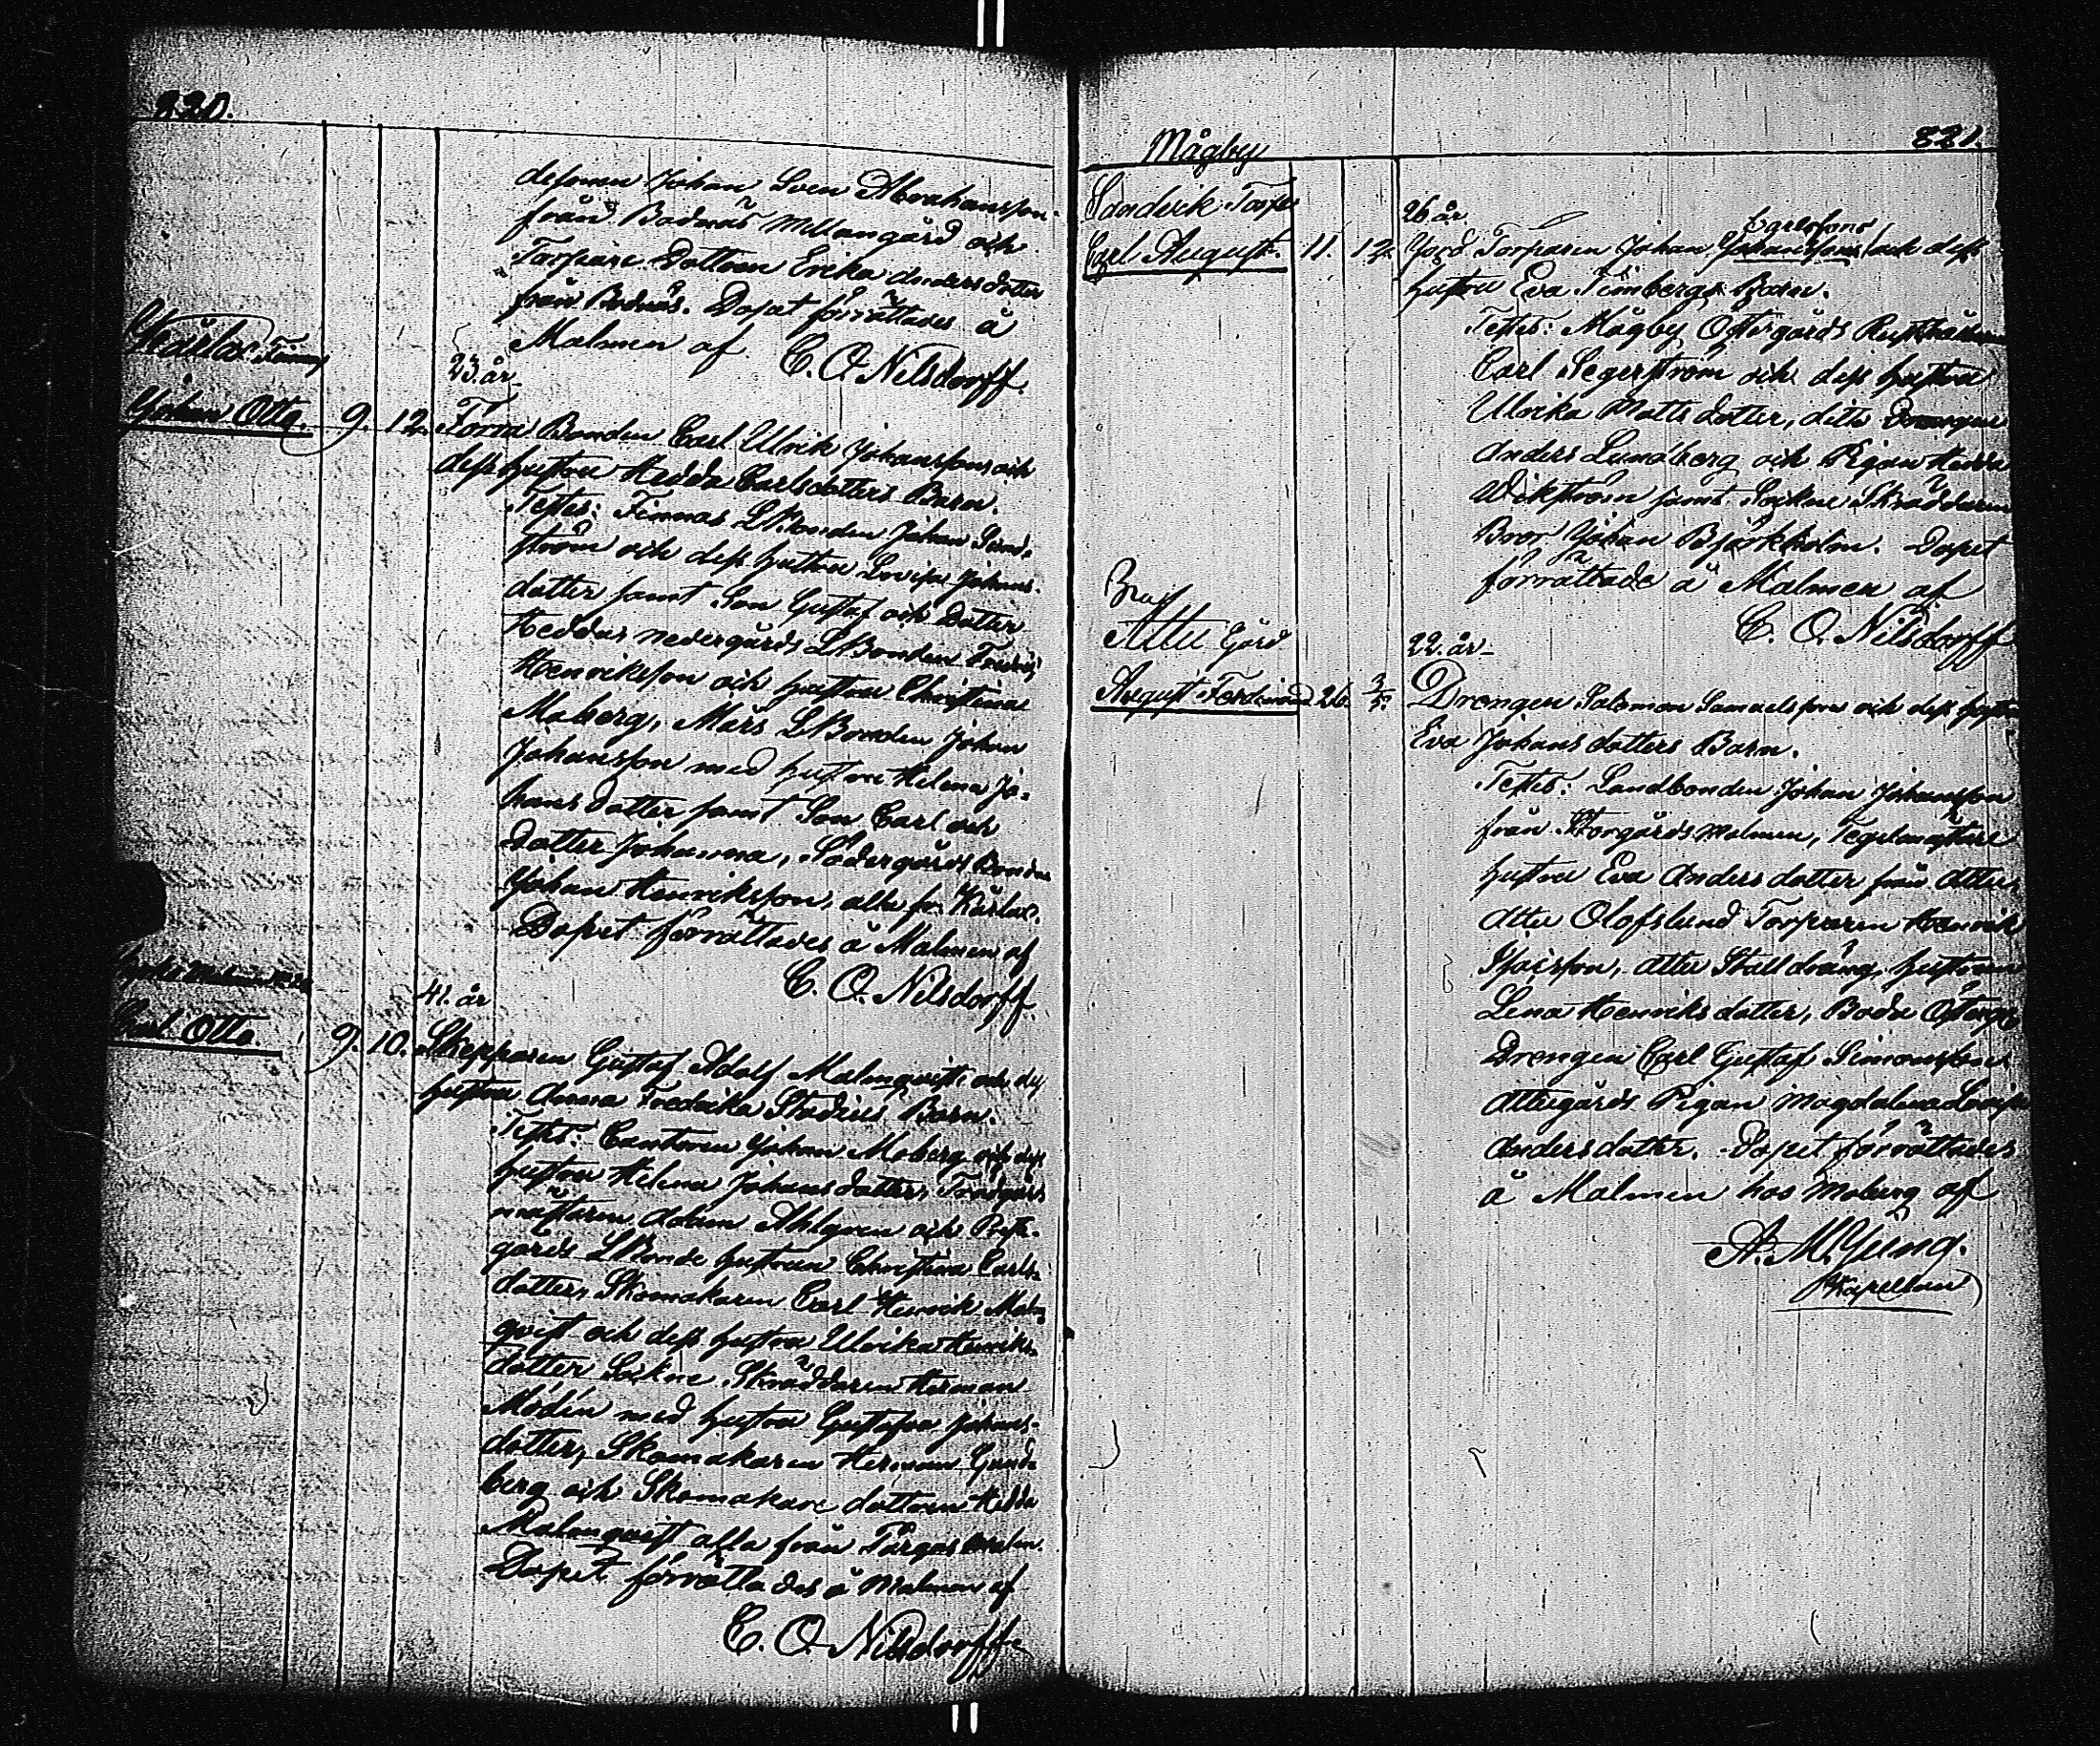 820.
desonen Johan Sven Abrahamsson
från Bodnäs Mellangård och
Torpare Dottren Erika Andersdotter
från Bodnäs. Dopet förrättades å
Malmen af C. O. Nilsdorff.
Kärlax
Johan Otto. 9. 12.
23. år
Förra Bonden Carl Ulrik Johanssons och
dess hustru Hedda Carlsdotters Barn.
Testes: Finnas LBonden Johan Sund-
ström och dess hustru Lovisa Johans-
dotter samt Son Gustaf och Dotter
Hedda, Nedergårds LBonden
Henriksson och hustru Christina
Moberg, Mårs LBonden Johan
Johansson med hustru Helena Jo-
hansdotter samt Son Carl och
Dotter Johanna, Södergårds
Johan Henriksson, alla fr. Kärlax.
Dopet förrättades å Malmen af
C. O. Nilsdorff.
Carl Otto. 9. 10.
41. år
Skepparen Gustaf Adolf Malmqvists och dess
hustru Anna Fredrika Stadius Barn.
Testes: Cantoren Johan Moberg och dess
hustru Helena Johansdotter, Trädgårds
mästaren Adam Ahlgren och Prest-
gårds LBonde hustrun Christina Carls-
dotter, Skomakaren Carl Henrik Malm-
qvist och dess hustru Ulrika Henriks-
dotter Sockne Skräddaren Herman
Modén med hustru Gustafva Johans-
dotter, Skomakaren Herman Grund-
berg och Skomakare dottren Hedda
Malmqvist alla från Pargas Malm.
Dopet förrättades å Malmen af
C. O. Nilsdorff
821.
Mågby
Sandvik Torp
Carl August. 11. 12.
26 år
Egelssons
Jord Torparen Johan Johanssons och dess
hustru Eva Timbergs Barn.
Testes: Mågby Östergårds Rusthållaren
Carl Segerström och dess hustru
Ulrika Mattsdotter, dito Drengen
Anders Lundberg och Pigan Hedda
Wikström samt Sockne Skräddaren
Bror Johan Björkholm. Dopet
förrättade å Malmen af
C. O. Nilsdorff
Attu Gård
August Ferdinand 26. 3/5.
22. år
Drengen Salomon Samuelssons och dess hustru
Eva Johansdotters Barn.
Testes: Landbonden Johan Johansson
från Storgårds Malmen, Tegelmästare
hustru Eva Andersdotter från Attu,
Attu Olofslund Torparen Henrik
Isaisson, Attu Stalldräng hustrun
Lena Henriksdotter,
Drengen Carl Gustaf Simonsson
Attugårds Pigan Magdalena Lovisa
Andersdotter. Dopet förrättades
å Malmen hos Moberg af
A. M. Jung.
Kapellan